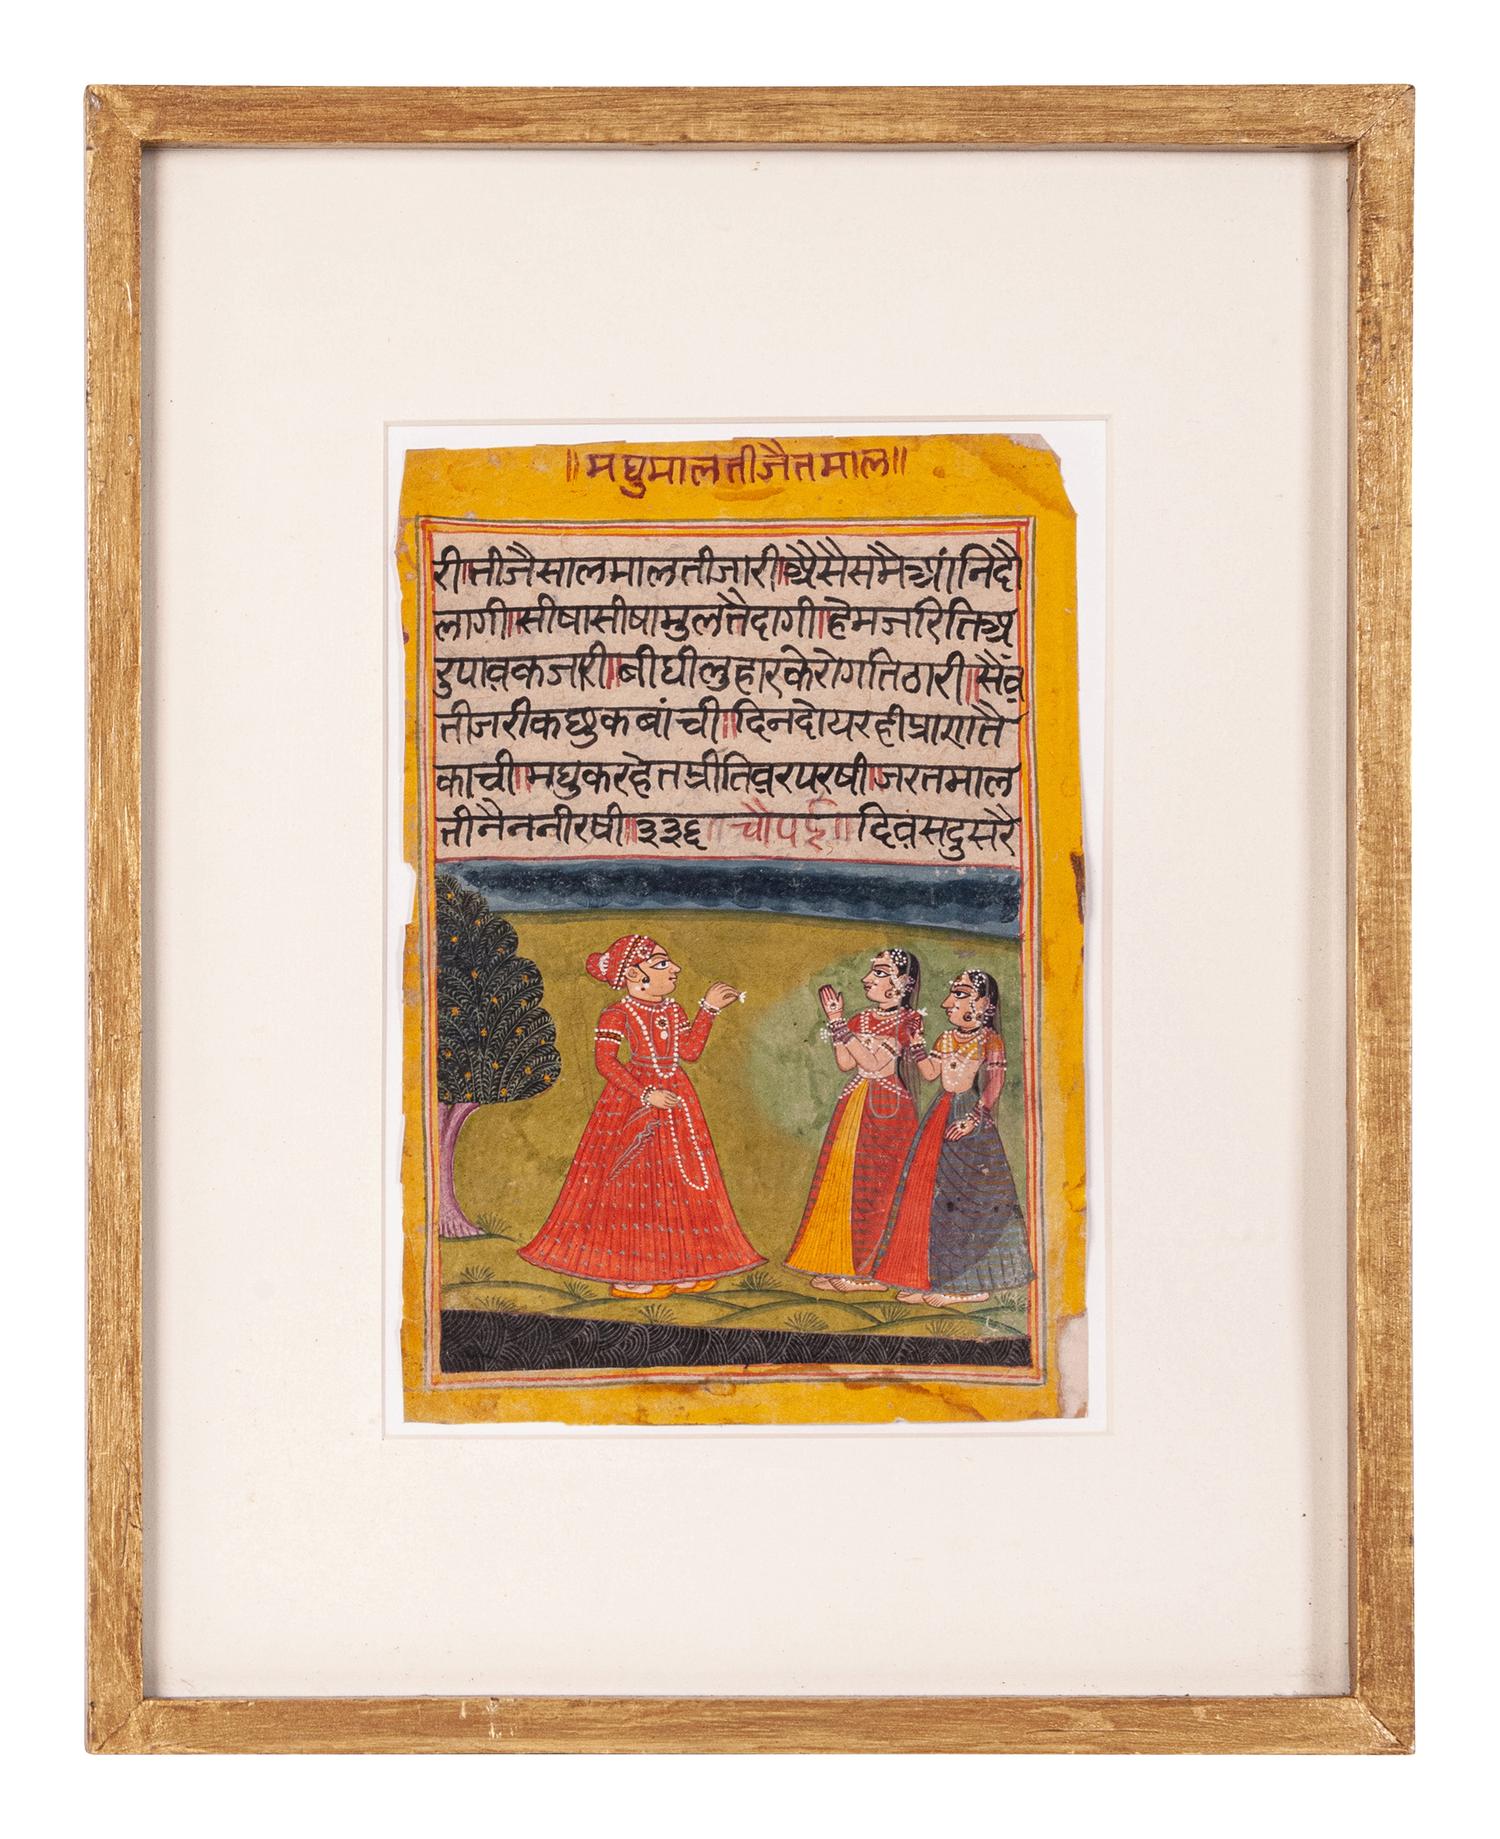 ॥मधुमालतीजैतमाल॥
री।तीजैसालमालतीजारी॥अैसैसमैआंनिदौ
लागी॥सीषासीषामुलतैदागी॥हेमजरितिअ
डुपावकजारी॥बीघीलुहारकेरोगतिठारी॥सैंव
तीजरीकछुकबांची॥दिनदोयरहीप्राणतै
काची॥मधुकरहेतप्रीतिवरपरषी॥जरतमाल
तीनैननीरषी॥३३६॥चौपई॥दिवसदुसरै